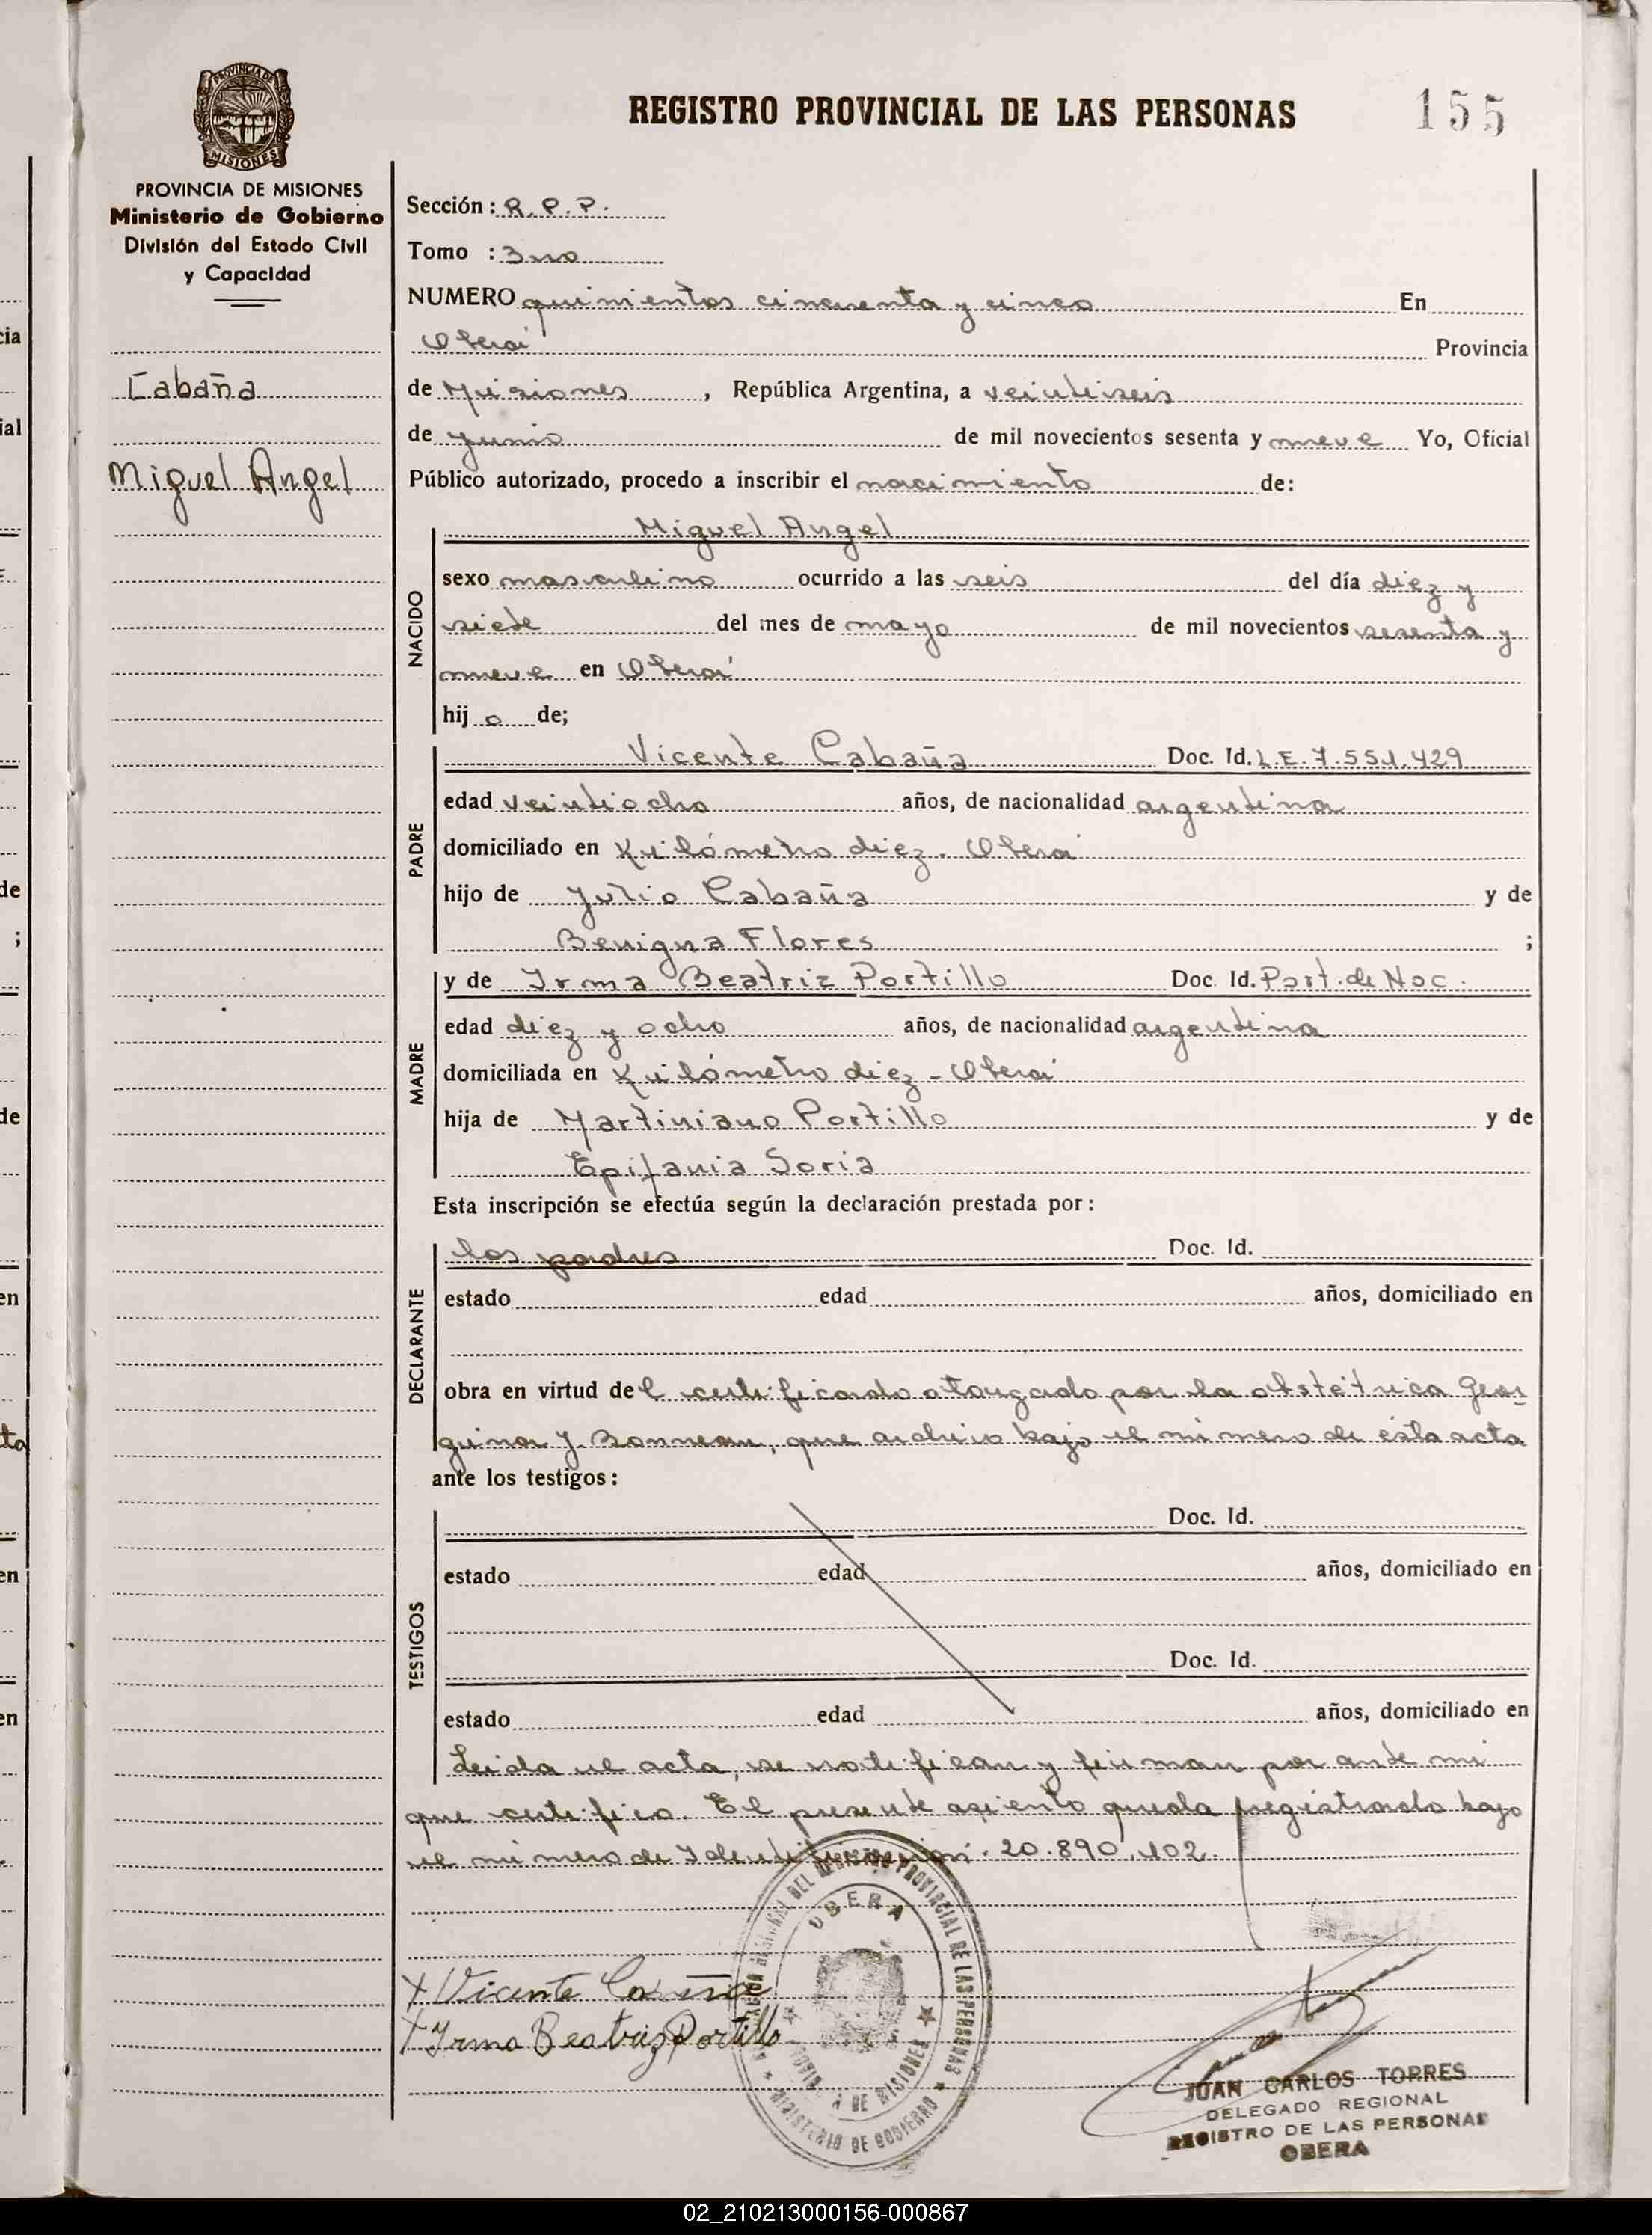 REGISTRO PROVINCIAL DE LAS PERSONAS
155
PROVINCIA DE
MISIONES
PROVINCIA DE MISIONES
Ministerio de Gobierno
División del Estado Civil
y Capacidad
Cabaña
Miguel Angel
Sección: R.P.P.
Tomo : 3ro
NUMERO quinientos cincuenta y cinco En
Oberá Provincia
de Misiones, República Argentina, a veintiseis
de junio de mil novecientos sesenta y nueve Yo, Oficial
Público autorizado, procedo a inscribir el nacimiento de:
NACIDO
Miguel Angel
sexo masculino ocurrido a las seis del día diez y
siete del mes de mayo de mil novecientos sesenta y
nueve en Oberá
hijo de;
PADRE
Vicente Cabaña Doc. Id. L.E. 7.551.429
edad veintiocho años, de nacionalidad argentina
domiciliado en Kilómetro diez. Oberá
hijo de Julio Cabaña y de
Benigna Flores ;
MADRE
y de Irma Beatriz Portillo Doc. Id. Part. de Nac.
edad diez y ocho años, de nacionalidad argentina
domiciliada en Kilómetro diez - Oberá
hija de Martiniano Portillo y de
Epifania Soria
Esta inscripción se efectúa según la declaración prestada por:
DECLARANTE
los padres Doc. Id.
estado edad años, domiciliado en
obra en virtud del certificado otorgado por la obstétrica Geor-
gina J. Bonneau, que archivo bajo el número de esta acta
ante los testigos:
TESTIGOS
Doc. Id.
estado edad años, domiciliado en
Doc. Id.
estado edad años, domiciliado en
Leida el acta, se notifican y firman por ante mi
que certifico. El presente asiento queda registrado bajo
el número de Identificación: 20.890.102.
OBERA
PROVINCIAL DE LAS PERSONAS
MINISTERIO DE GOBIERNO
DE MISIONES
x Vicente Cabaña
x Irma Beatriz Portillo
JUAN CARLOS TORRES
DELEGADO REGIONAL
REGISTRO DE LAS PERSONAS
OBERA
02_210213000156-000867